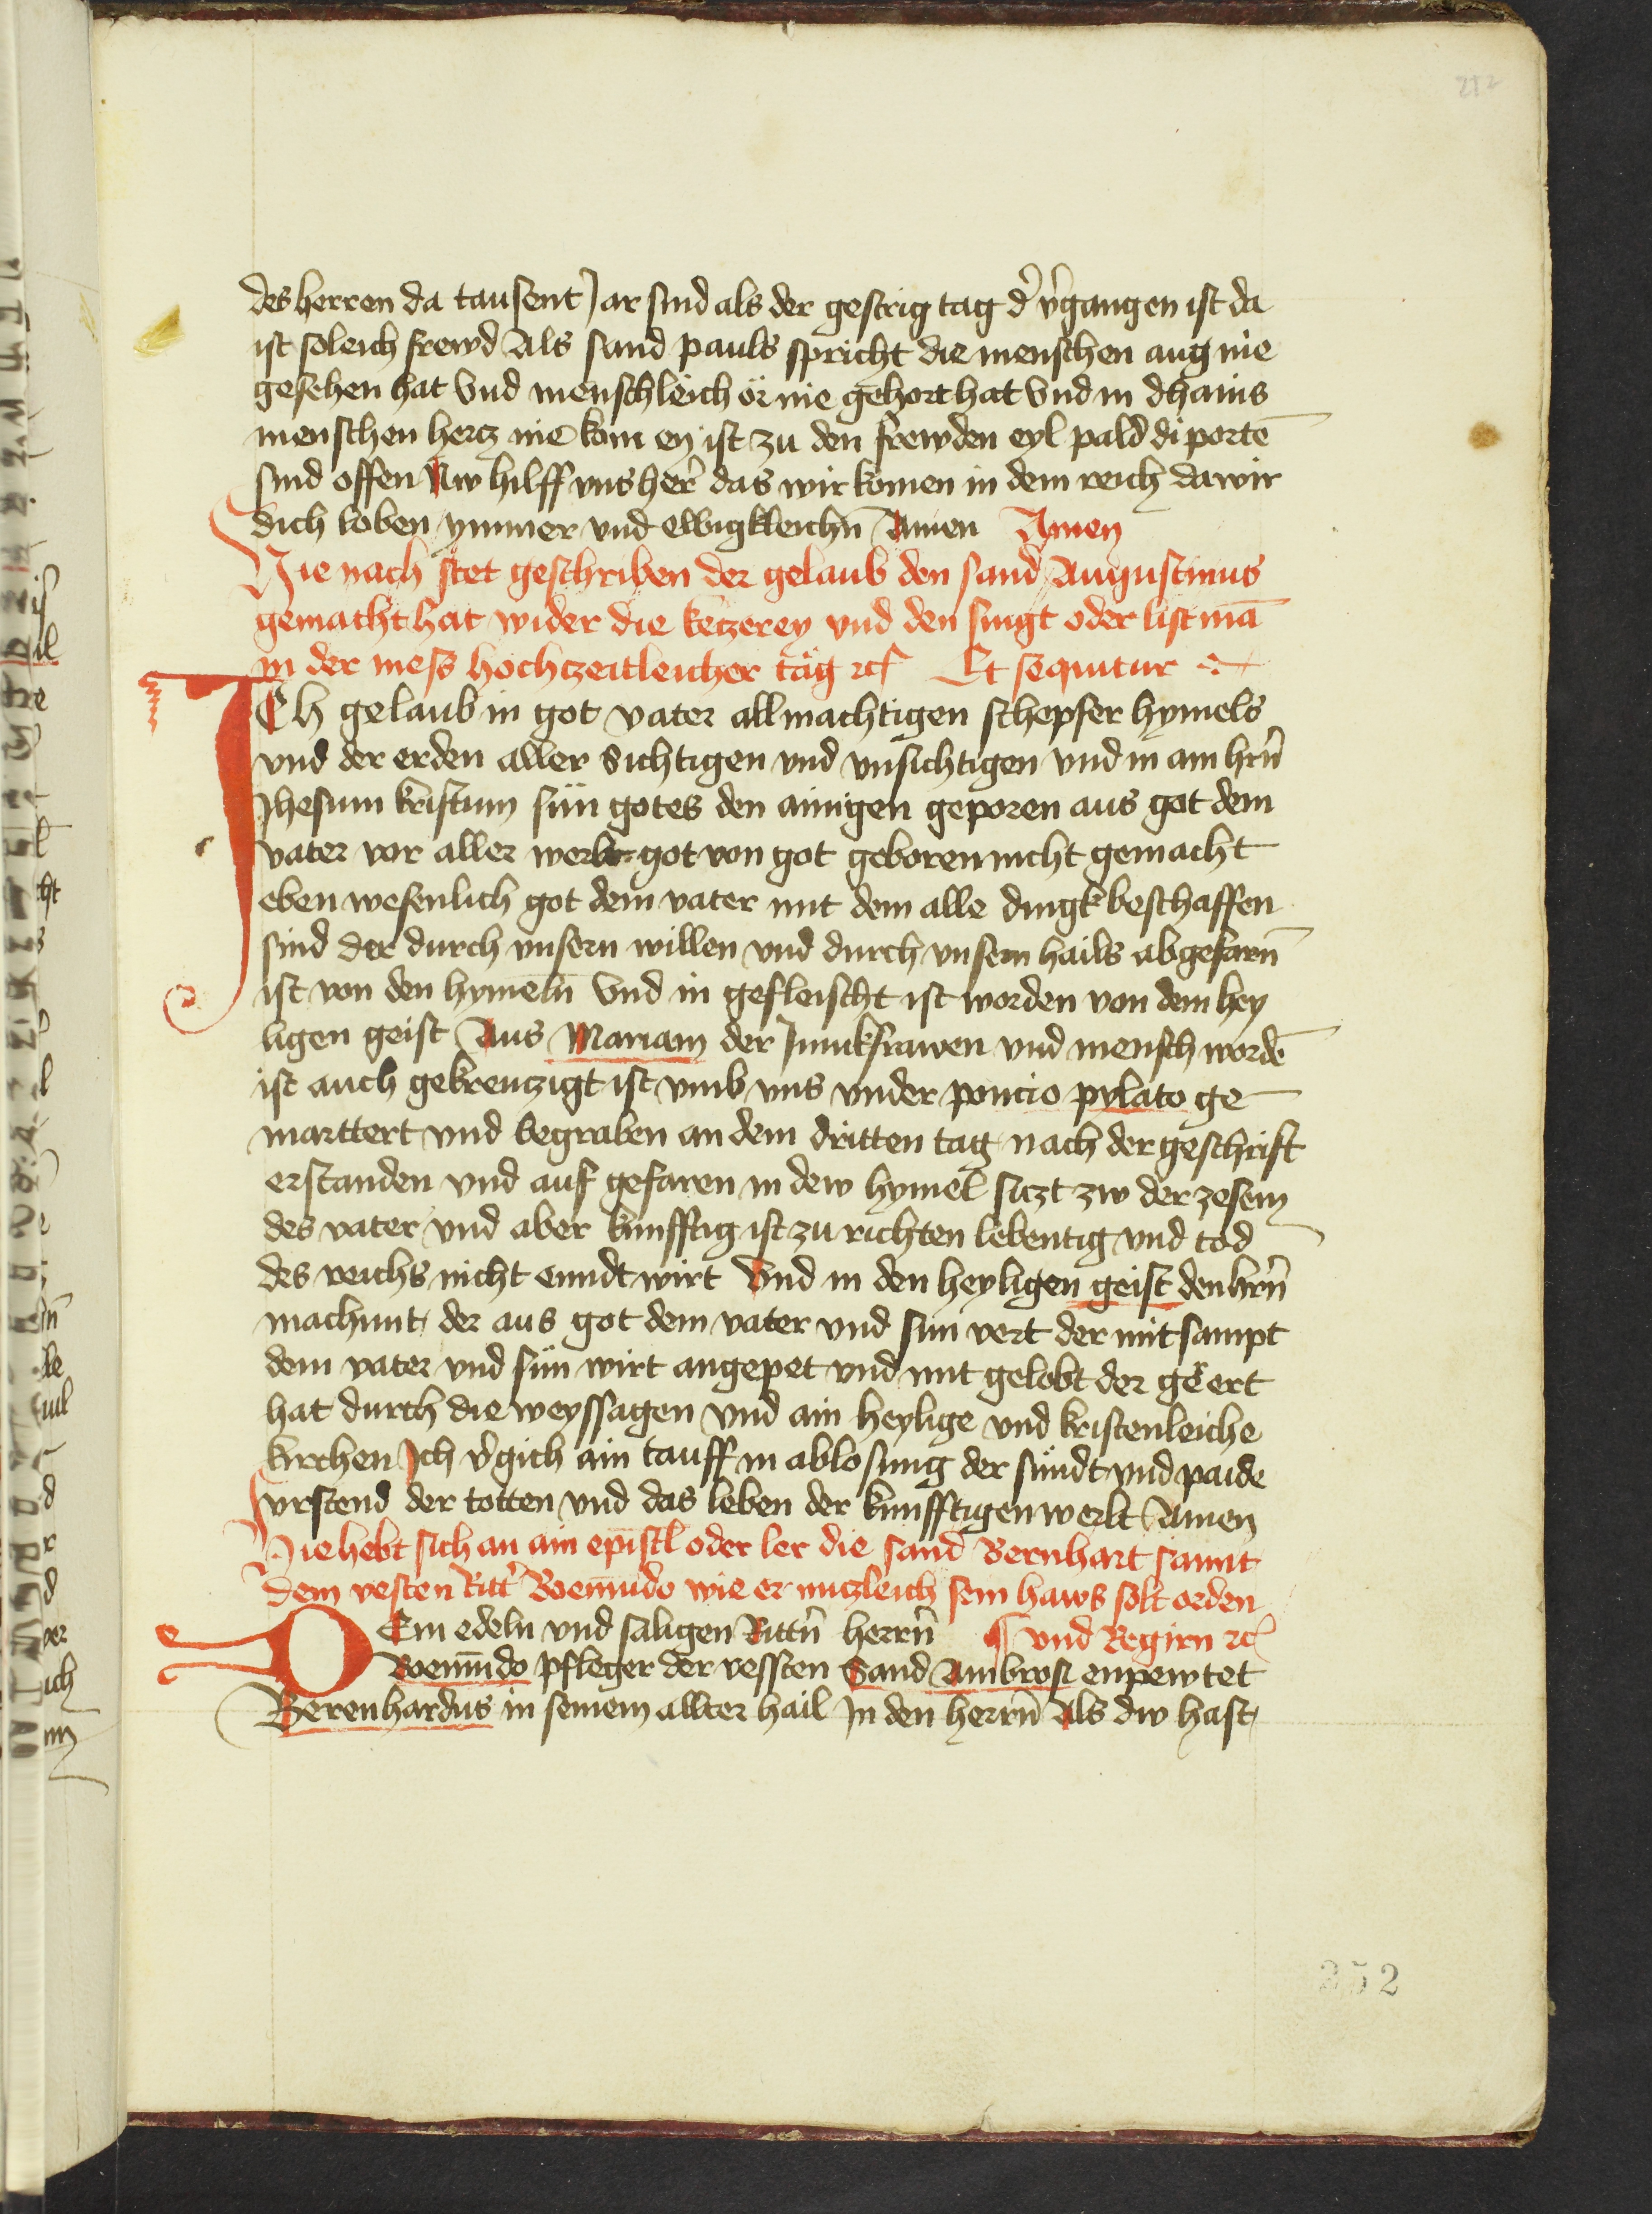 212
des herren da tausent Jar sind als der gestrig tag d' v'gangen ist da
ist soleich frewd Als sand pauls spricht die menschen aug nie
gesehen hat Vnd menschleich ör nie gehort hat Vnd in dhains
menschen hercz nie kom ey ist zu den frewden eyl pald di portē
sind offen Nw hilff vns her' das wir komen in dem reich da wir
dich loben ymmer vnd ewigkleichn̄ Amen Amen
Hie nach stet geschriben der gelaub den sand Augustinus
gemacht hat wider die ketzerey vnd den singt oder list mā
in der mess hochczeitleicher täg rcʃ Et sequitur
ICh gelaub in got vater allmachtigen schepfer hymels
vnd der erden aller sichtigen vnd vnsichtigen vnd in ain hrn̄
Jhesum kristum sün gotes den ainigen geporen aus got dem
vater vor aller werlt got von got geboren nicht gemacht
eben wesenlich got dem vater mit dem alle dingk beschaffen
sind der durch vnsern willen vnd durch vnsern hails abgefarn̄
ist von den hymeln̄ Vnd in gefleischt ist worden von dem hey
ligen geist Aus Mariam der Junckfrawen vnd mensch wordē
ist auch gekreuczigt ist vmb vns vnder poncio pylato ge
marttert vnd begraben an dem dritten tag nach der geschrift
erstanden vnd auf gefaren in dew hymel siczt zw der zesem
des vater vnd aber kunfftig ist zu richten lebentig vnd tod
des reichs nicht enndt wirt Vnd in den heyligen geist den hrn̄
machunt der aus got dem vater vnd sun vert der mit sampt
dem vater vnd sün wirt angepet vnd mit gelobt der geert
hat durch die weyssagen vnd ain heylige vnd kristenleiche
kirchen Ich v'gich ain tauff in ablosung der sündt vnd paide
vrstend der totten vnd das leben der kunfftigen werlt Amen
Hie hebt sich an ain epistl oder ler die sand Bernhart sannt
dem vesten Ritt' Boemūdo wie er nuczleich sein haws solt orden
DEm edeln vnd saligen Rittn̄ herrn̄ ¶ vnd Regirn rcʃ
Boemūdo pfleger der vessten Sand Ambrosi enpewtet
Berenhardus in seinem allter hail In den herrn̄ Als dw hast
352